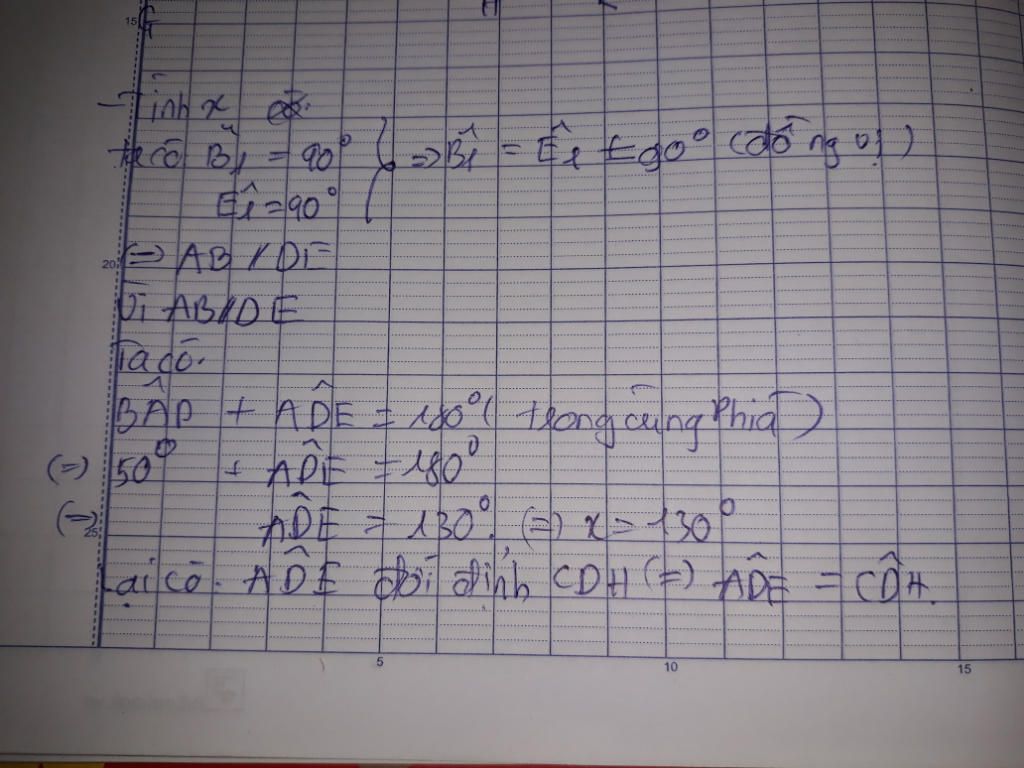 15
- Tính x
ta có B̂₁ = 90° } => B̂₁ = Ê₁ = 90° (đồng vị)
Ê₁ = 90°
20
(=) AB // DE
Vì AB // DE
Ta có.
BÂD + AD̂E = 180° (trong cùng phía)
(=) 50° + AD̂E = 180°
(=) AD̂E = 130°. (=) x = 130°
25
Lại có. AD̂E đối đỉnh CDH (=) AD̂E = CD̂H.
5 10 15